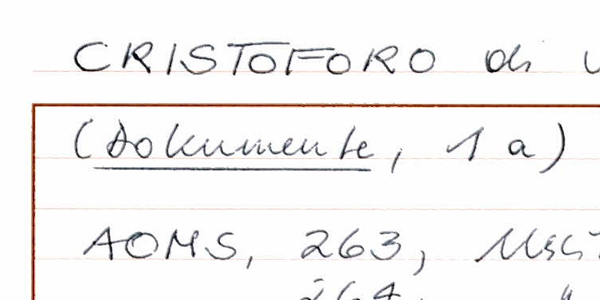 CRISTOFORO di
(Dokumente, 1 a)
AOMS, 263,
264,